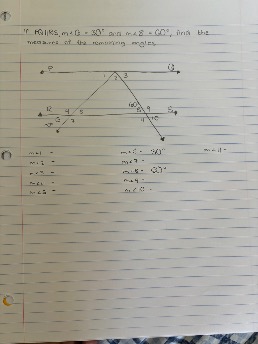 PQ || RS, m<6 = 30° and m<8 = 60°, find the
measures of the remaining angles.
P Q
1 2 3
60°
R 4 5 8 9 S
6 7 11 10
m<1 = m<6 = 30° m<11 =
m<2 = m<7 =
m<3 = m<8 = 60°
m<4 = m<9 =
m<5 =